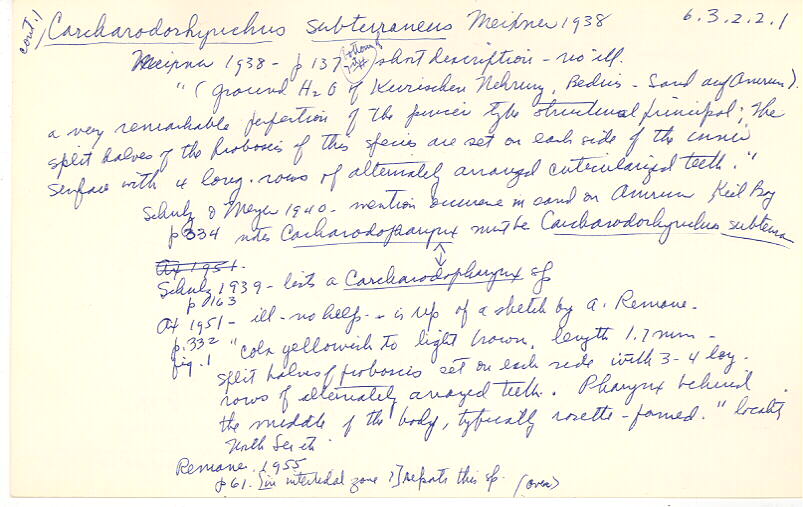 cont.) Carcharodorhynchus subterraneus Meixner 1938 6.3.2.2.1
Meixner 1938 - p 137 (bottom of 1st #) short description - no ill.
"(ground H2O of Kurischen Nehrung, - Sand auf Amrum).
a very remarkable perfection of the pincer type structural principal; the
split halves of the proboscis of this species are set on each side of the inner
surface with 4 long. rows of alternately arranged cuticularized teeth."
Schulz & Meyer 1940 - mention occurence in sand on Amrum Keil Bay
p 334 notes Carcharodopharynx must be Carcharodorhynchus subterra
Ax 1951.
Schulz 1939 - lists a Carcharodopharynx sp
p 163
Ax 1951 - ill - no help - is rep of a sketch by A. Remane.
p. 332 "color yellowish to light brown, length 1.7 mm -
fig. 1 split halves of proboscis set on each side with 3-4 long.
rows of alternately arrayed teeth. Pharynx behind
the middle of the body, typically rosette-formed." locality
North Sea
Remane. 1955
p 61. [in intertidal zone ?] reports this sp. (over)